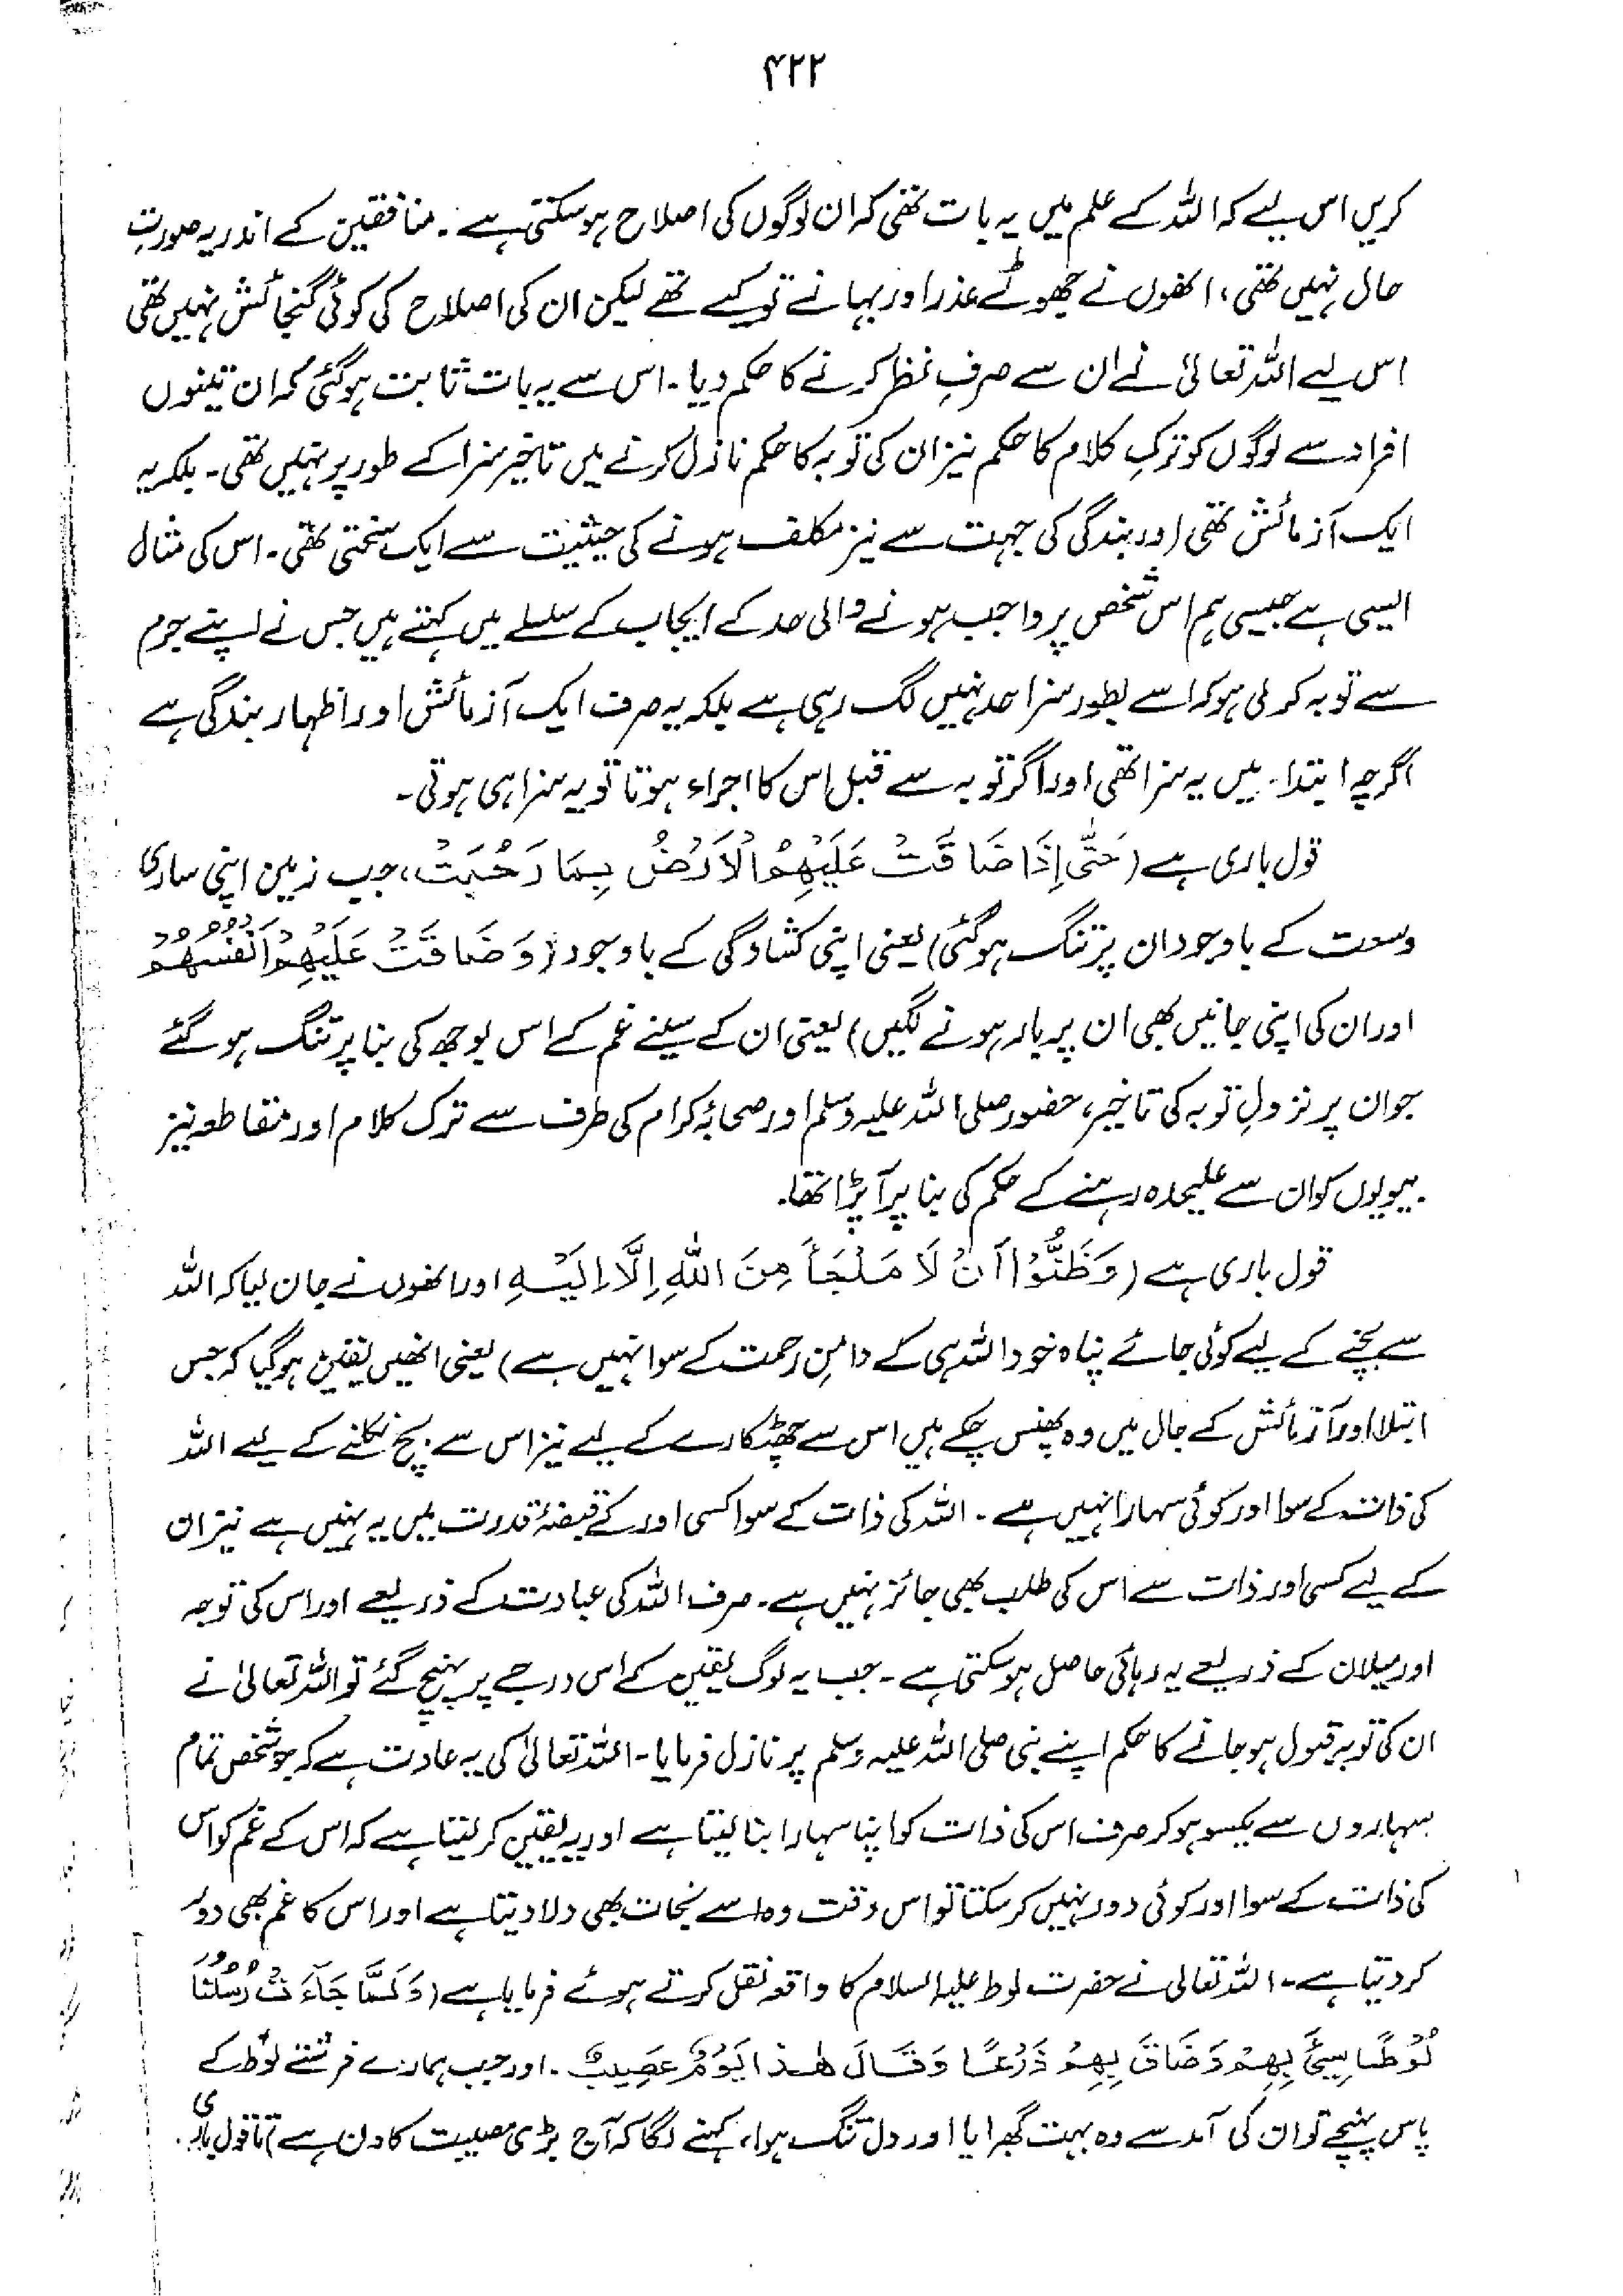 ۴۲۲
کریں اس لیے کہ اللہ کے علم میں یہ بات تھی کہ ان لوگوں کی اصلاح ہوسکتی ہے۔ منافقین کے اندر یہ صورتِ
حال نہیں تھی، انھوں نے جھوٹے عذر اور بہانے تو کیے تھے لیکن ان کی اصلاح کی کوئی گنجائش نہیں تھی
اس لیے اللہ تعالیٰ نے ان سے صرفِ نظر کرنے کا حکم دیا۔ اس سے یہ بات ثابت ہوگئی کہ ان تینوں
افراد سے لوگوں کو ترکِ کلام کا حکم نیز ان کی توبہ کا حکم نازل کرنے میں تاخیر سزا کے طور پر نہیں تھی۔ بلکہ یہ
ایک آزمائش تھی اور بندگی کی جہت سے نیز مکلف ہونے کی حیثیت سے ایک سختی تھی۔ اس کی مثال
ایسی ہے جیسی ہم اس شخص پر واجب ہونے والی حد کے ایجاب کے سلسلے میں کہتے ہیں جس نے اپنے جرم
سے توبہ کرلی ہو کہ اسے بطور سزا حد نہیں لگ رہی ہے بلکہ یہ صرف ایک آزمائش اور اظہار بندگی ہے
اگرچہ ابتداء میں یہ سزا تھی اور اگر توبہ سے قبل اس کا اجراء ہوتا تو یہ سزا ہی ہوتی۔
قول باری ہے (حَتّٰى اِذَا ضَاقَتْ عَلَيْهِمُ الْاَرْضُ بِمَا رَحُبَتْ، جب زمین اپنی ساری
وسعت کے باوجود ان پر تنگ ہوگئی) یعنی اپنی کشادگی کے باوجود (وَضَاقَتْ عَلَيْهِمْ اَنْفُسُهُمْ
اور ان کی اپنی جانیں بھی ان پر بار ہونے لگیں) یعنی ان کے سینے غم کے اس بوجھ کی بنا پر تنگ ہو گئے
جو ان پر نزولِ توبہ کی تاخیر، حضور صلی اللہ علیہ وسلم اور صحابۂ کرام کی طرف سے ترک کلام اور مقاطعہ نیز
بیویوں کو ان سے علیحدہ رہنے کے حکم کی بنا پر آپڑا تھا۔
قول باری ہے (وَظَنُّوْا اَنْ لَا مَلْجَأَ مِنَ اللّٰهِ اِلَّا اِلَيْهِ اور انھوں نے جان لیا کہ اللہ
سے بچنے کے لیے کوئی جائے پناہ خود اللہ ہی کے دامنِ رحمت کے سوا نہیں ہے) یعنی انھیں یقین ہوگیا کہ جس
ابتلا اور آزمائش کے جال میں وہ پھنس چکے ہیں اس سے چھٹکارے کے لیے نیز اس سے بچ نکلنے کے لیے اللہ
کی ذات کے سوا اور کوئی سہارا نہیں ہے۔ اللہ کی ذات کے سوا کسی اور کے قبضۂ قدرت میں یہ نہیں ہے نیز ان
کے لیے کسی اور ذات سے اس کی طلب بھی جائز نہیں ہے۔ صرف اللہ کی عبادت کے ذریعے اور اس کی توجہ
اور میلان کے ذریعے یہ رہائی حاصل ہوسکتی ہے۔ جب یہ لوگ یقین کے اس درجے پر پہنچ گئے تو اللہ تعالیٰ نے
ان کی توبہ قبول ہوجانے کا حکم اپنے نبی صلی اللہ علیہ وسلم پر نازل فرمایا۔ اللہ تعالیٰ کی یہ عادت ہے کہ جو شخص تمام
سہاروں سے یکسو ہوکر صرف اس کی ذات کو اپنا سہارا بنا لیتا ہے اور یہ یقین کرلیتا ہے کہ اس کے غم کو اس
کی ذات کے سوا اور کوئی دور نہیں کرسکتا تو اس وقت وہ اسے نجات بھی دلا دیتا ہے اور اس کا غم بھی دور
کر دیتا ہے۔ اللہ تعالیٰ نے حضرت لوط علیہ السلام کا واقعہ نقل کرتے ہوئے فرمایا ہے (وَلَمَّا جَآءَتْ رُسُلُنَا
لُوْطًا سِیْٓءَ بِهِمْ وَضَاقَ بِهِمْ ذَرْعًا وَقَالَ هٰذَا يَوْمٌ عَصِيْبٌ۔ اور جب ہمارے فرشتے لوطؑ کے
پاس پہنچے تو ان کی آمد سے وہ بہت گھبرایا اور دل تنگ ہوا، کہنے لگا کہ آج بڑی مصیبت کا دن ہے) تا قول باری